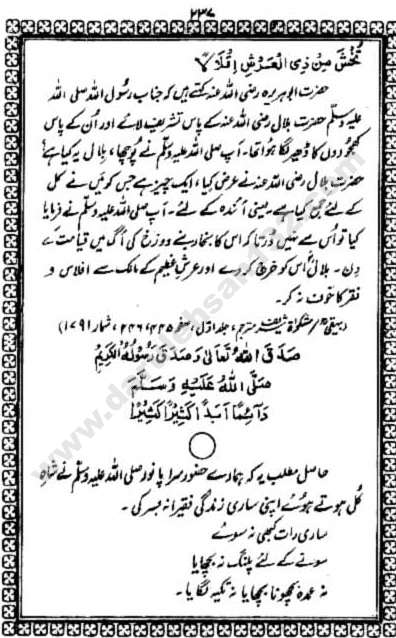 ۲۳۷
تَخْشَ مِنْ ذِی الْعَرْشِ اِقْلَالًا
حضرت ابوہریرہ رضی اللہ عنہ کہتے ہیں کہ جناب رسول اللہ صلی اللہ
علیہ وسلم حضرت بلال رضی اللہ عنہ کے پاس تشریف لائے اور اُن کے پاس
کھجوروں کا ڈھیر لگا ہوا تھا۔ آپ صلی اللہ علیہ وسلم نے پوچھا، بلال یہ کیا ہے؟
حضرت بلال رضی اللہ عنہ نے عرض کیا، ایک چیز ہے جس کو میں نے کل
کے لئے جمع کیا ہے۔ یعنی آئندہ کے لئے۔ آپ صلی اللہ علیہ وسلم نے فرمایا
کیا تو اُس سے نہیں ڈرتا کہ اس کا بخار بنے دوزخ کی آگ میں قیامت کے
دن۔ بلال اُس کو خرچ کر دے اور عرشِ عظیم کے مالک سے افلاس و
فقر کا خوف نہ کر۔
(بیہقی / مشکوٰۃ شریف مترجم، جلد اول، صفحہ ۴۴۵، ۴۴۶، شمار ۱۷۹۱)
صَدَقَ اللّٰهُ تَعَالٰی وَصَدَقَ رَسُوْلُهُ الْكَرِیْمُ
صَلَّی اللّٰهُ عَلَیْهِ وَسَلَّمَ
دَآئِمًا اَبَدًا كَثِیْرًا كَثِیْرًا
حاصل مطلب یہ کہ ہمارے حضور سراپا نور صلی اللہ علیہ وسلم نے شاہِ
کُل ہوتے ہوئے اپنی ساری زندگی فقیرانہ بسر کی۔
ساری رات کبھی نہ سوئے
سونے کے لئے پلنگ نہ بچھایا
نہ عمدہ بچھونا بچھایا نہ تکیہ لگایا۔